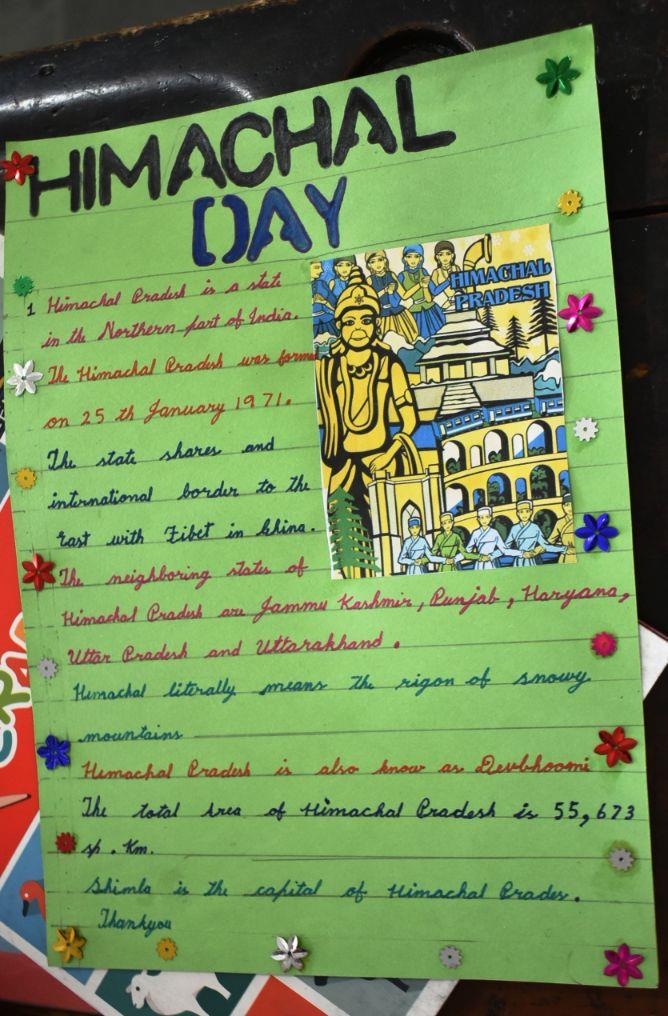 HIMACHAL
DAY
HIMACHAL
PRADESH
1 Himachal Pradesh is a state
in the Northern part of India.
The Himachal Pradesh was forme
on 25 th January 1971.
The state shares and
international border to the
East with Tibet in China.
The neighboring states of
Himachal Pradesh are Jammu Kashmir, Punjab, Haryana,
Uttar Pradesh and Uttarakhand.
Himachal literally means the rigon of snowy
mountains
Himachal Pradesh is also know as Devbhoomi
The total Area of Himachal Pradesh is 55,673
sp. Km.
Shimla is the capital of Himachal Prades.
Thankyou